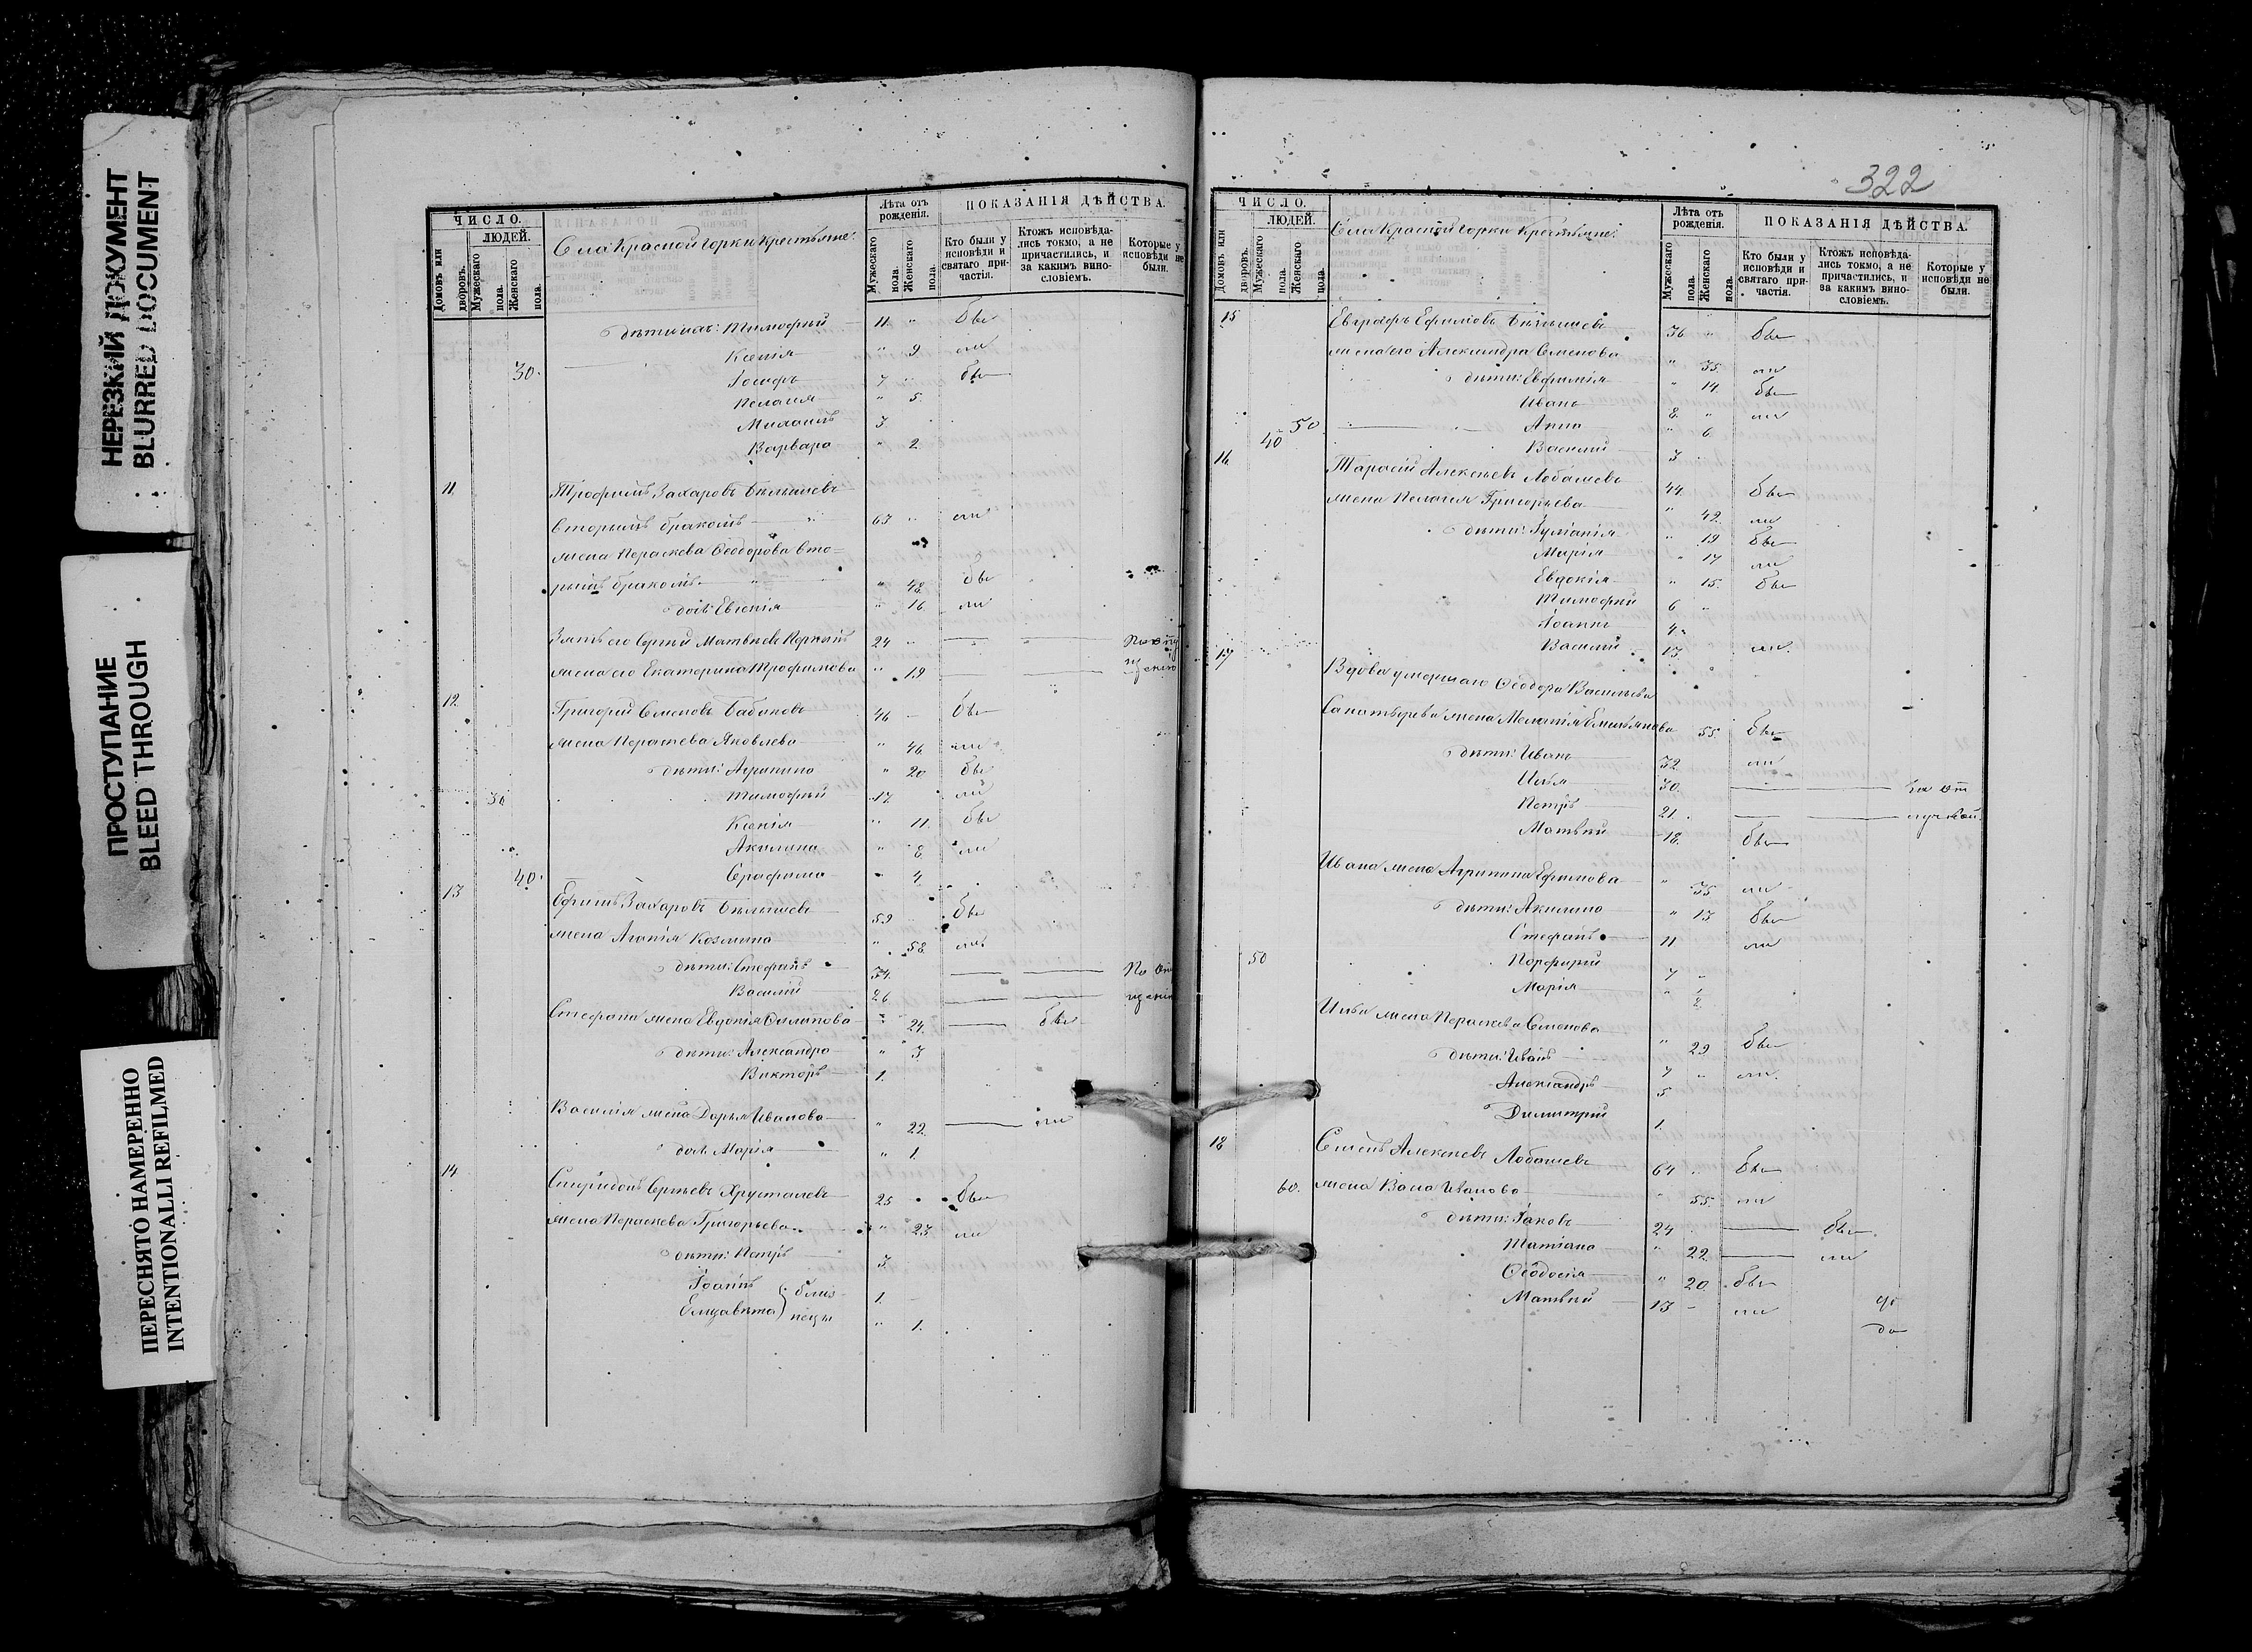 НЕРЕЗКИЙ ДОКУМЕНТ
BLURRED DOCUMENT
ПРОСТУПАНИЕ
BLEED THROUGH
ПЕРЕСНЯТО НАМЕРЕННО
INTENTIONALLI REFILMED
ЧИСЛО.
ЛЮДЕЙ.
Домовъ или дворовъ.
Мужескаго пола.
Женскаго пола.
Села Красной Горки крестьяне:
Лѣта отъ рожденія.
Мужескаго пола.
Женскаго пола.
ПОКАЗАНІЯ ДѢЙСТВА.
Кто были у исповѣди и святаго причастія.
Ктожъ исповѣдались токмо, а не причастились, и за какимъ винословіемъ.
Которые у исповѣди не были.
дѣти ихъ: Тимофей 11 " бы
Ксенія " 9 ли
30. Іосифъ 7 " бы
Пелагія " 5.
Михаилъ 3.
Варвара " 2
11 Трофимъ Захаровъ Бѣлышевъ
вторымъ бракомъ 63 " ли
жена Параскева Ѳеодорова вто-
рымъ бракомъ " 48. бы
дочь Евгенія " 16 ли
Зять его Сергій Матвѣевъ 24 "
жена его Екатерина Трофимова " 19
12 Григорій Семеновъ Бабиковъ 46 бы
жена Параскева Яковлева " 46 ли
дѣти: Агрипина " 20 бы
30 Тимофей 17 ли
Ксенія " 11. бы
Акилина " 8 ли
40. Серафима " 4
13 Ефимъ Захаровъ Бѣлышевъ 59 бы
жена Агапія Козмина " 58 ли
дѣти: Стефанъ 34. По от
Василій 26
Стефана жена Евдокія Филипова " 24. бы
дѣти: Александра " 3
Викторъ 1.
Василія жена Дарья Иванова " 22. ли
дочь Марія " 1
14 Спиридонъ Сергѣевъ Хрусталевъ 25 бы
жена Параскева Григорьева " 23 ли
дѣти: Петръ 3
Іоаннъ 1. близ-
Елизавета " 1. нецы
322
ЧИСЛО.
ЛЮДЕЙ.
Домовъ или дворовъ.
Мужескаго пола.
Женскаго пола.
Села Красной Горки крестьяне:
Лѣта отъ рожденія.
Мужескаго пола.
Женскаго пола.
ПОКАЗАНІЯ ДѢЙСТВА.
Кто были у исповѣди и святаго причастія.
Ктожъ исповѣдались токмо, а не причастились, и за какимъ винословіемъ.
Которые у исповѣди не были.
15 Евграфъ Ефимовъ Бѣлышевъ 36 " бы
жена его Александра Семенова " 35. ли
дѣти: Евфимія " 14. бы
Иванъ 8. " ли
50. Анна " 6
40 Василій 3
16 Тарасій Алексѣевъ Лобашевъ 44. бы
жена Пелагія Григорьева " 42 ли
дѣти: Іуліанія " 19 бы
Марія " 17 ли
Евдокія " 15. бы
Тимофей 6 "
Іоаннъ 4
Василій 13 ли.
17 Вдова умершаго Ѳеодора Васильева
жена Меланія Емильянова 55. бы
дѣти: Иванъ 32 ли
Илья 30. въ от
Петръ 21. лучкой.
Матвѣй 18. бы
Ивана жена Агрипина Ефимова " 35 ли
дѣти: Акилина " 13 бы
Стефанъ 11 ли
50 Порфирій 7
Марія "
Ильи жена Параскева Семенова " 29 бы
дѣти: Иванъ 7 " ли.
Александръ 5
Димитрій 1.
18 Семенъ Алексѣевъ Лобашевъ 64 " бы
60. жена Васа Иванова " 55. ли
дѣти: Іаковъ 24 бы
Татіана " 22 ли
Ѳеодосія " 20 бы
Матвѣй 13 ли